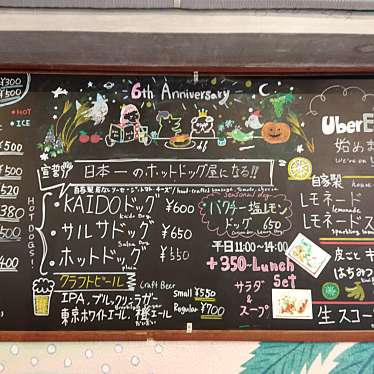 6th Anniversary
宣誓!!
日本一のホットドッグ屋になる!!
KAIDOドッグ ¥600
Kaido Dog
サルサドッグ ¥650
Salsa Dog
ホットドッグ ¥550
plain
HOT DOGS!
クラフトビール Craft Beer
IPA、ブルックリンラガー
東京ホワイトエール、
Small ¥550
Regular ¥700
パクチー塩レモン
ドッグ 650
平日11:00~14:00
+350~Lunch Set
サラダ
&
スープ
¥300
¥500
HOT
ICE
¥500
¥500
¥520
¥500
¥400
Uber
始め
自家製
レモネード
lemonade
レモネードス
皮ごと キ
はちみつ
生スコー